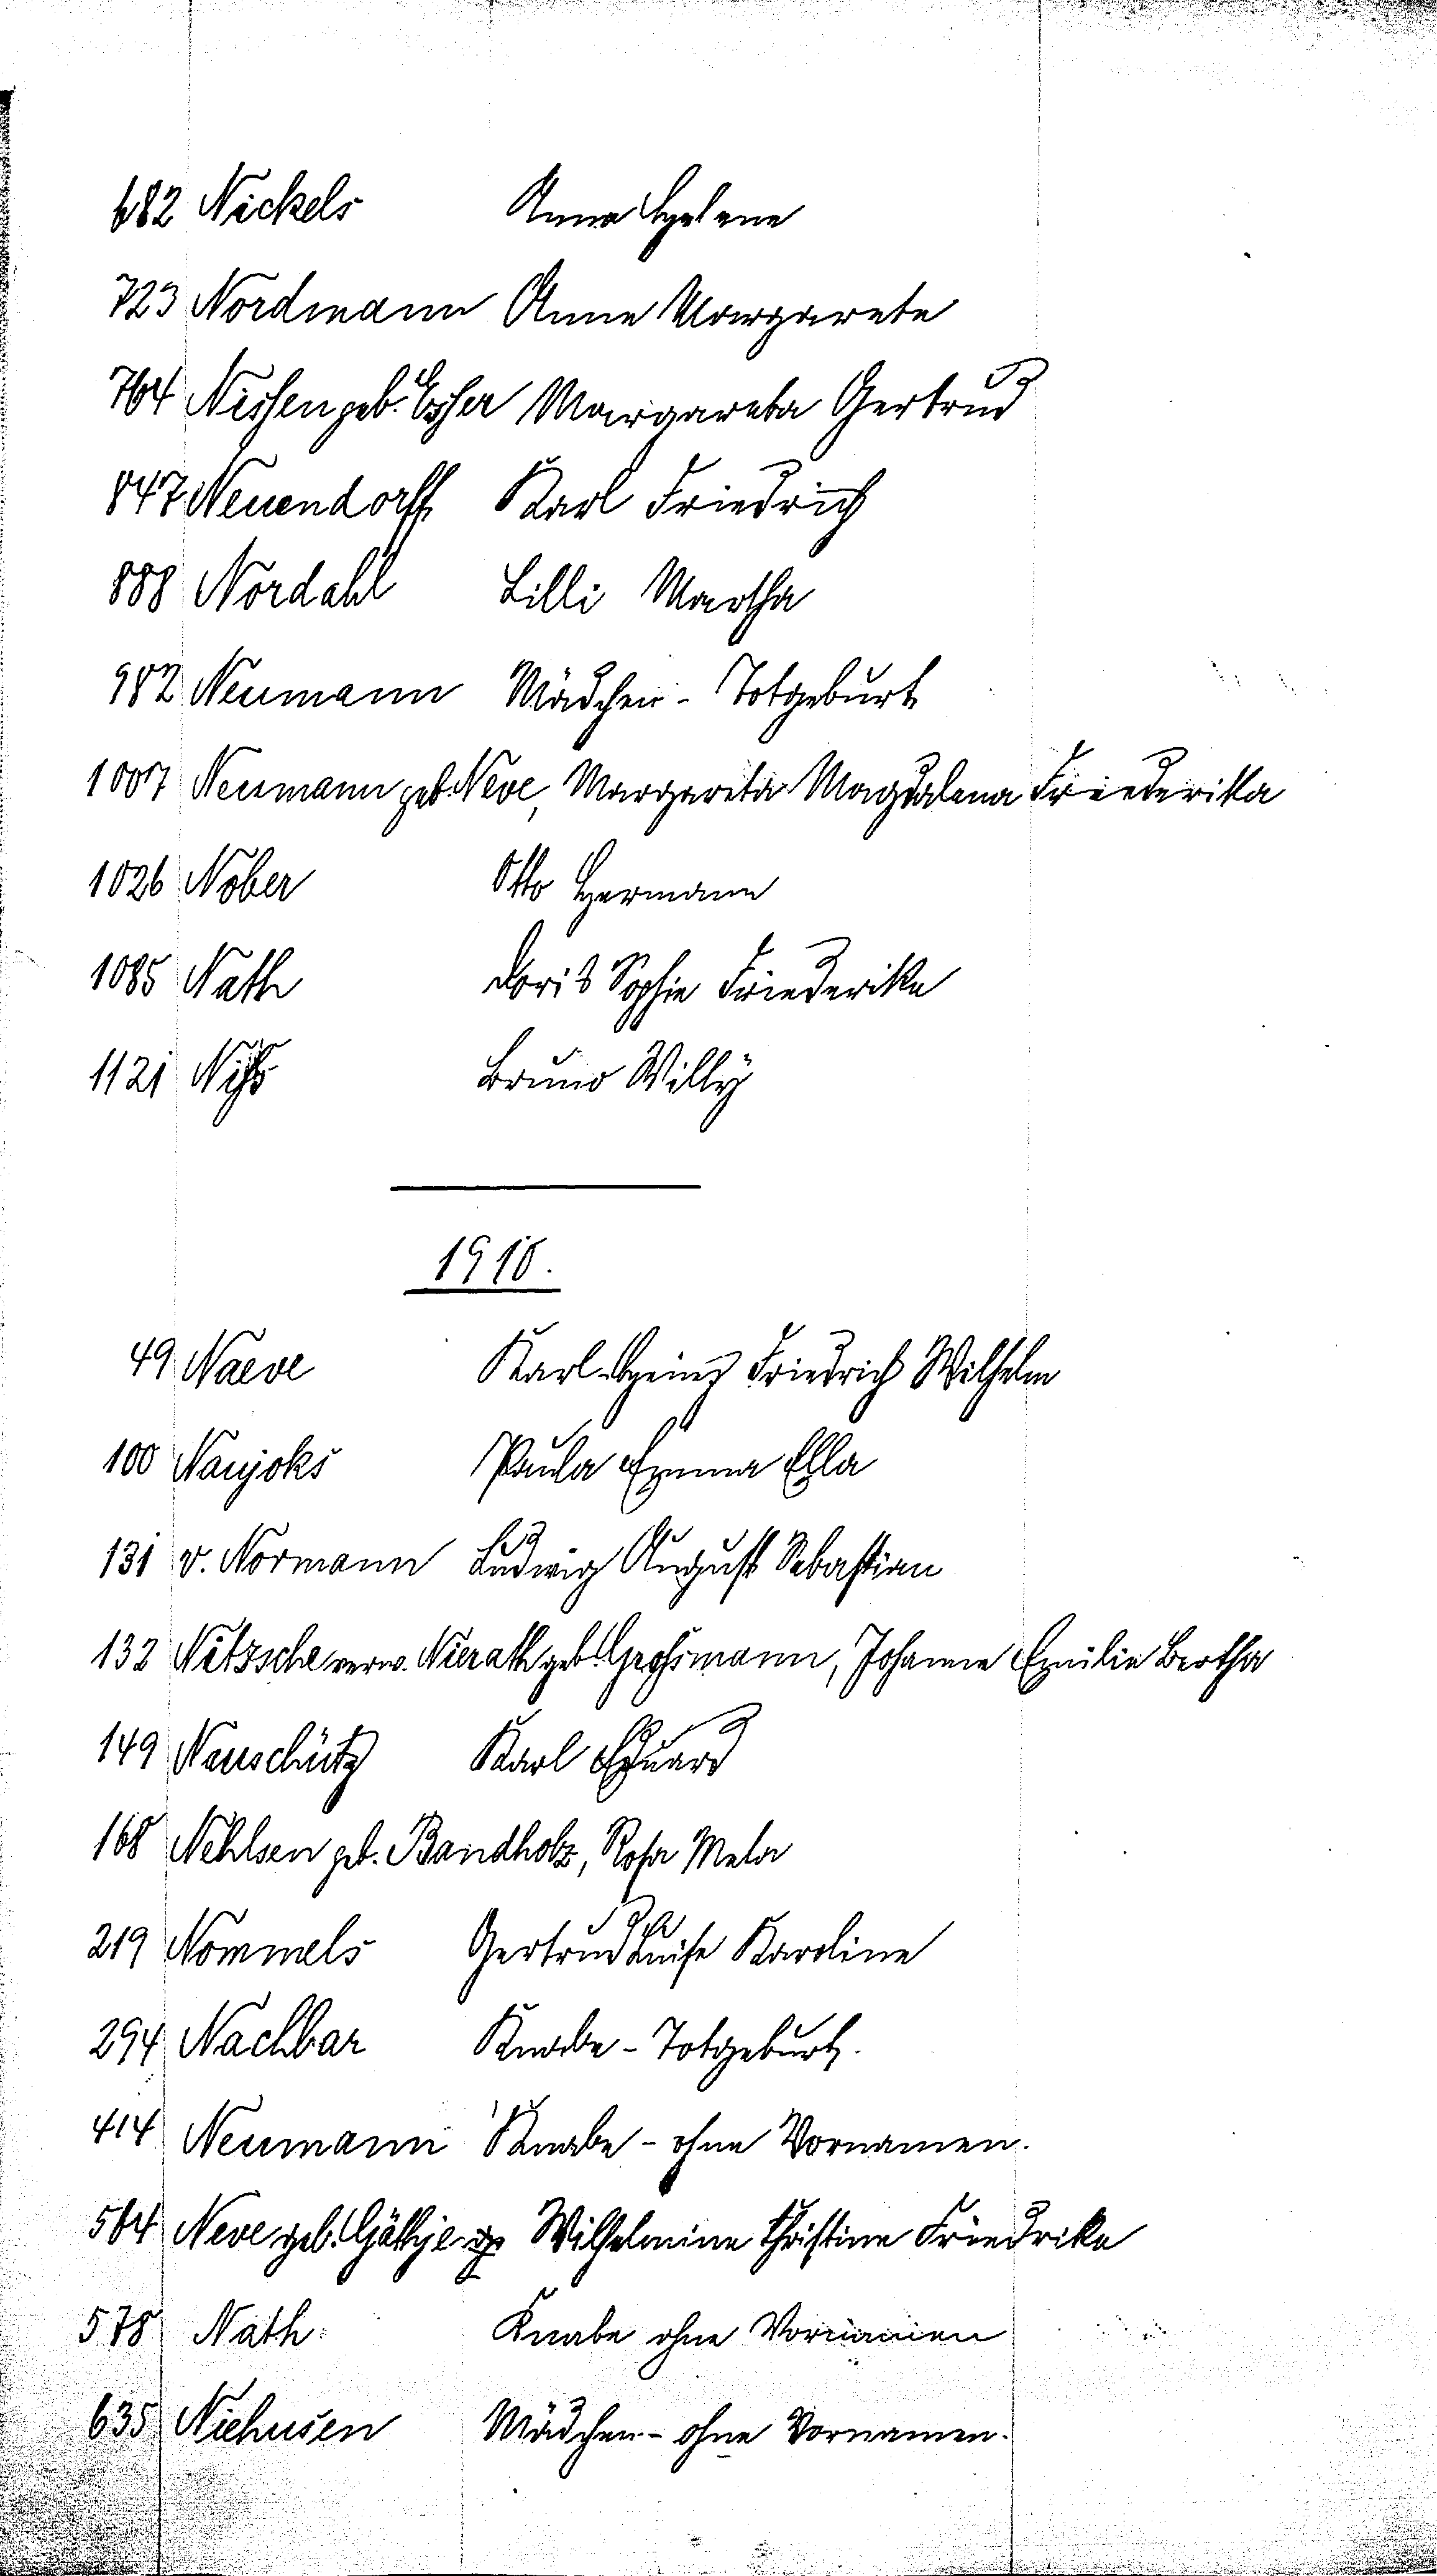 682 Nickels Anna Helene
723 Nordmann Anne Margarete
764 Nissen geb. Esser Margareta Gertrud
847 Neuendorff Karl Friedrich
888 Nordahl Lilli Martha
982 Neumann Mädchen - Totgeburt
1007 Neumann geb. Neve, Margareta Magdalena Friederika
1026 Nober Otto Hermann
1085 Nath Doris Sophie Friederike
1121 Bruno Willy
1910.
49 Naeve Karl-Heinz Friedrich Wilhelm
100 Naujoks Paula Emma Ella
131 v. Normann Ludwig August Sebastian
132 Nitzsche verw. Nierath geb. Grossmann, Johanne Emilie Bertha
149 Nauschütz Karl Eduard
168 Nehlsen geb. Bandholz, Rosa Mela
219 Nommels Gertrud Luise Karoline
294 Nachbar Knabe - Totgeburt.
414 Neumann Knabe - ohne Vornamen.
564 Neve geb. Gäthje Wilhelmine Christine Friedrike
578 Nath Knabe ohne Vornamen
635 Niehusen Mädchen - ohne Vornamen.